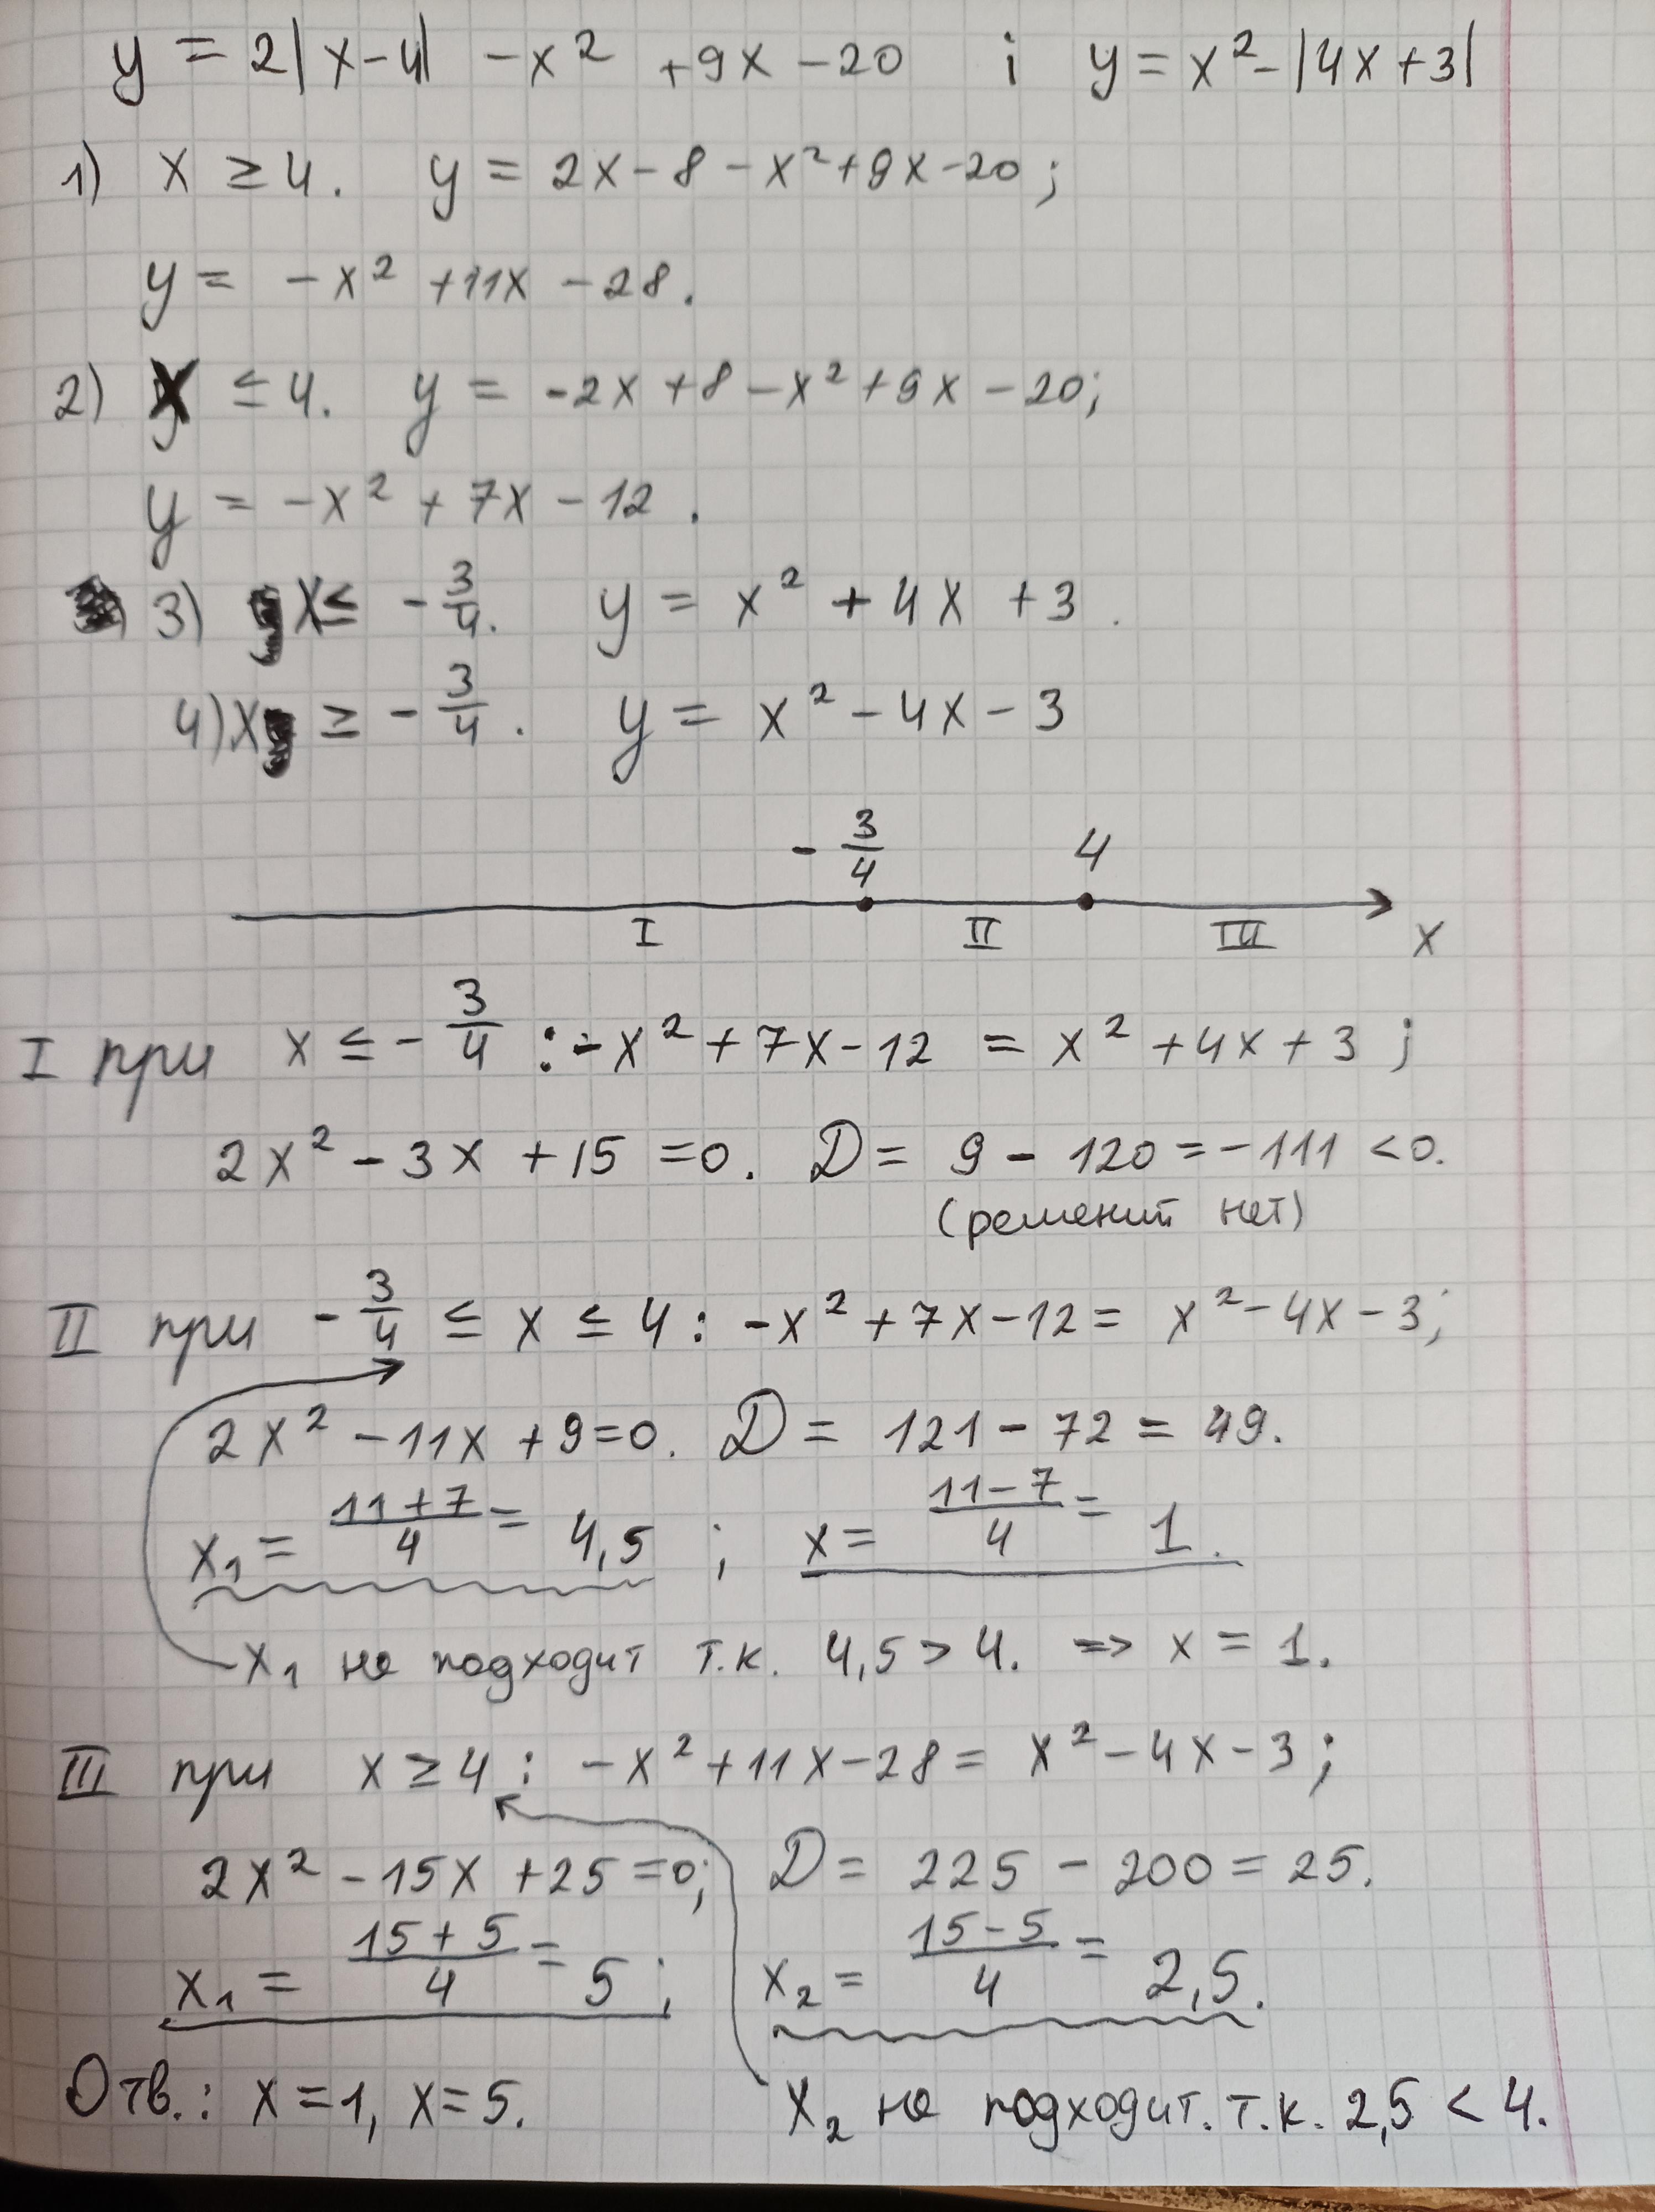 y = 2|x-4| - x² + 9x - 20 і y = x² - |4x+3|
1) x ≥ 4. y = 2x - 8 - x² + 9x - 20;
y = -x² + 11x - 28.
2) x ≤ 4. y = -2x + 8 - x² + 9x - 20;
y = -x² + 7x - 12.
3) x ≤ -3/4. y = x² + 4x + 3.
4) x ≥ -3/4. y = x² - 4x - 3
-3/4 4
I II III x
I при x ≤ -3/4 : -x² + 7x - 12 = x² + 4x + 3;
2x² - 3x + 15 = 0. D = 9 - 120 = -111 < 0.
(решений нет)
II при -3/4 ≤ x ≤ 4 : -x² + 7x - 12 = x² - 4x - 3;
2x² - 11x + 9 = 0. D = 121 - 72 = 49.
x₁ = (11+7)/4 = 4,5 ; x = (11-7)/4 = 1.
x₁ не подходит т.к. 4,5 > 4. => x = 1.
III при x ≥ 4 : -x² + 11x - 28 = x² - 4x - 3;
2x² - 15x + 25 = 0; D = 225 - 200 = 25.
x₁ = (15+5)/4 = 5; x₂ = (15-5)/4 = 2,5.
Отв.: x = 1, x = 5. x₂ не подходит. т.к. 2,5 < 4.